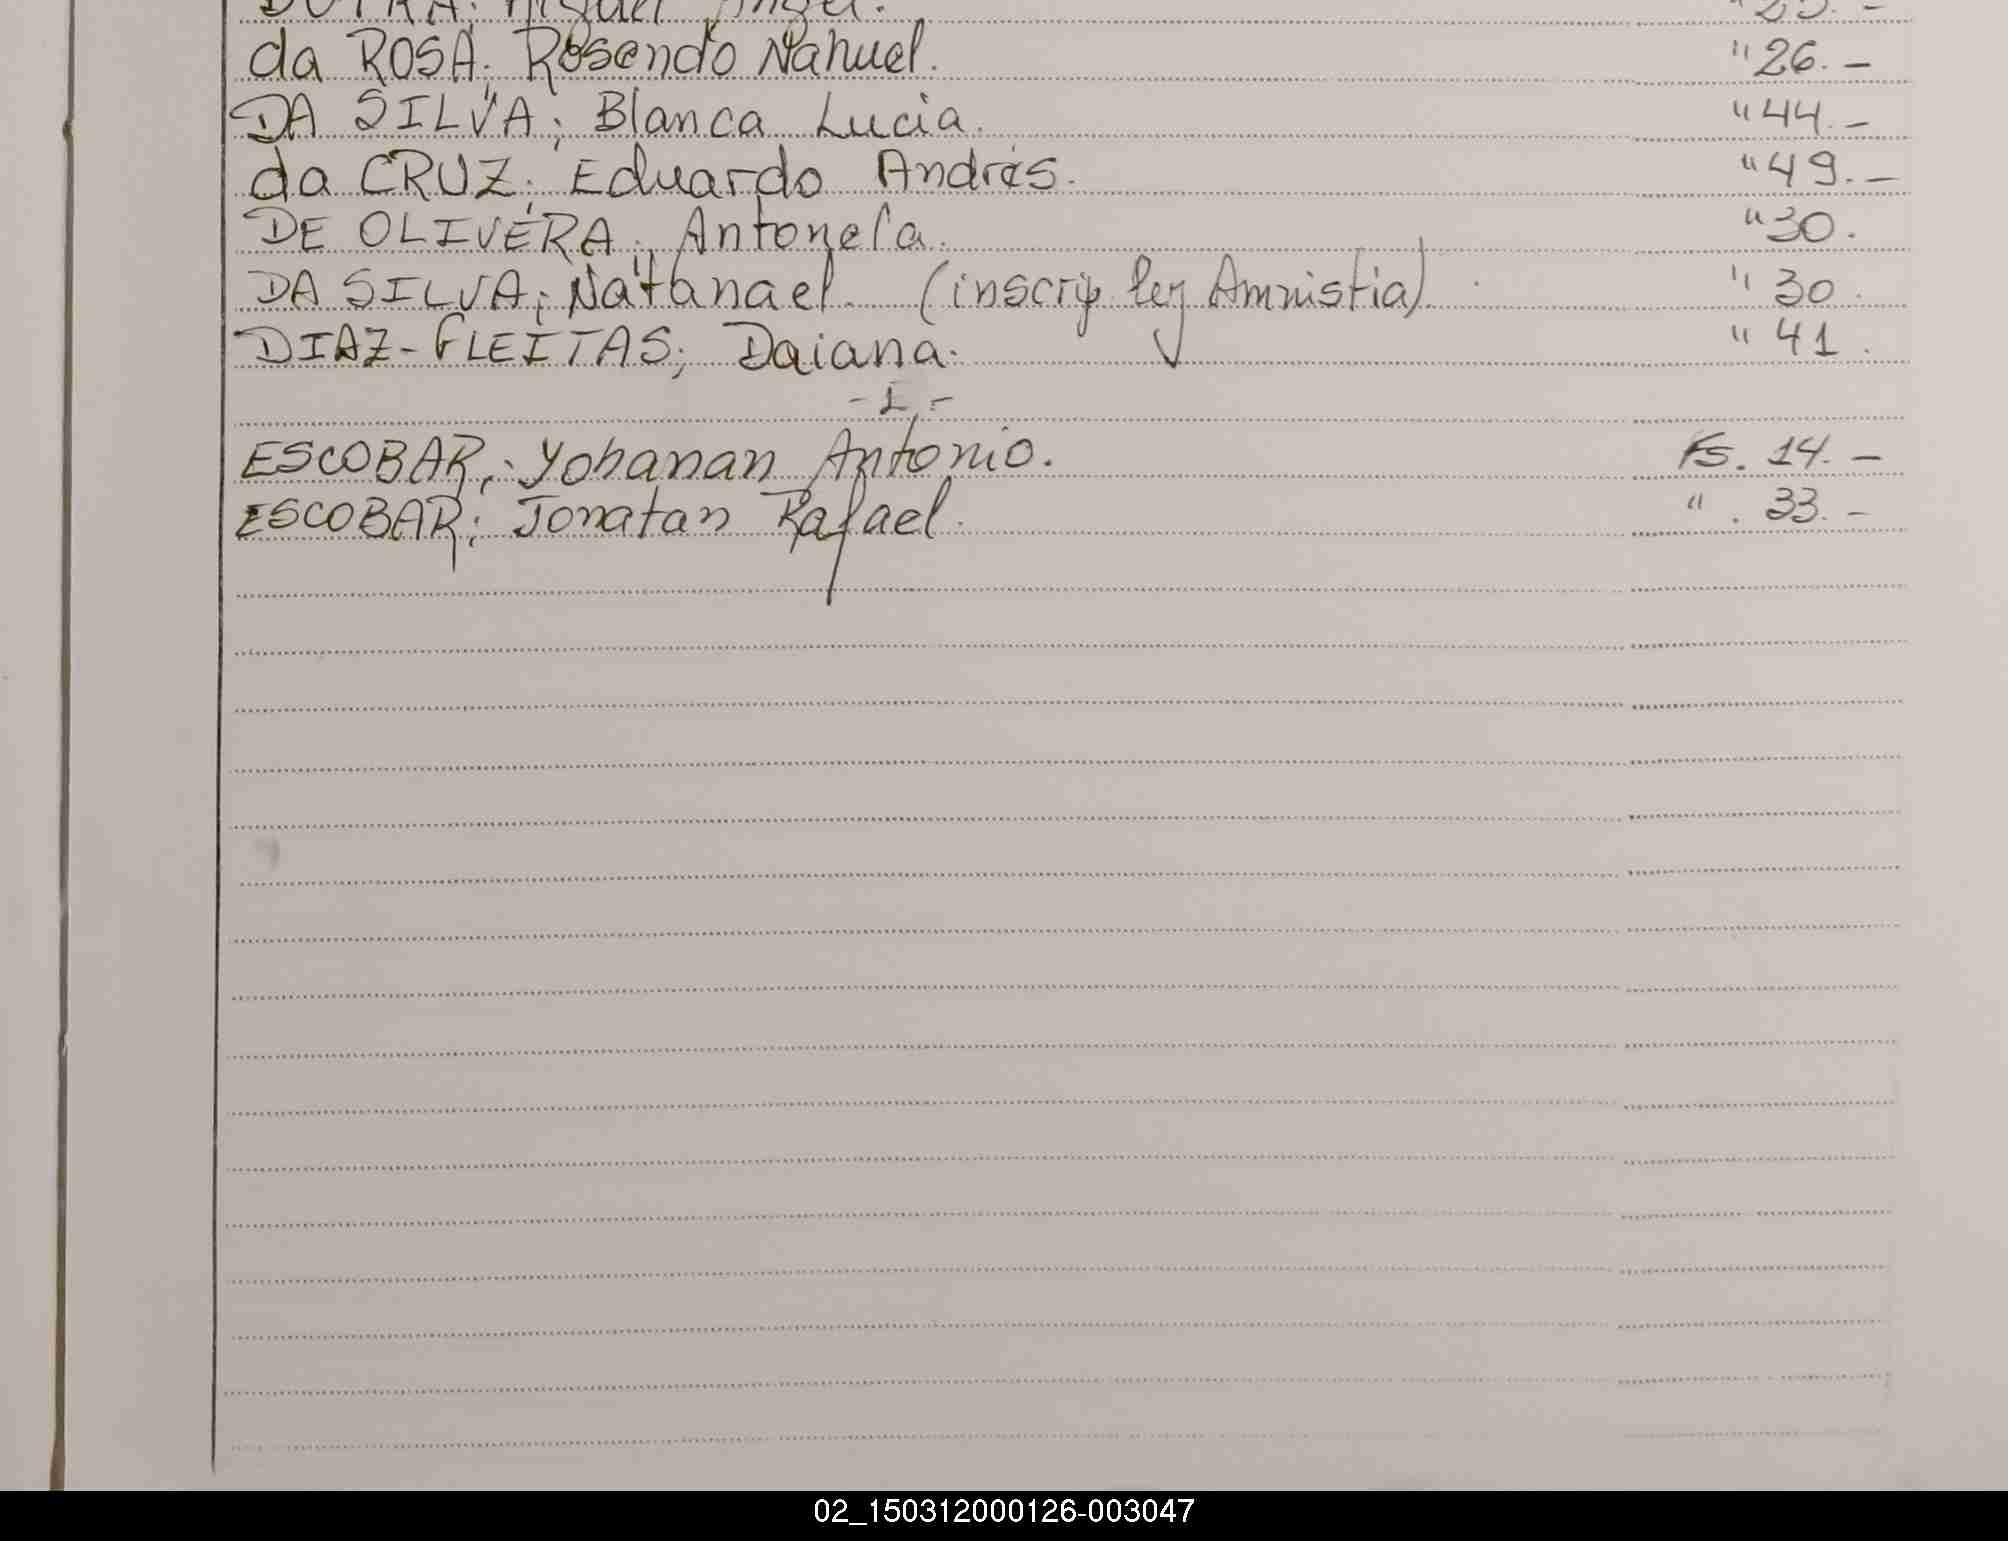 DUTRA; Miguel Angel. "25.-
da ROSA; Rosendo Nahuel. "26.-
DA SILVA; Blanca Lucia. "44.-
da CRUZ; Eduardo Andrés. "49.-
DE OLIVERA; Antonela. "30.
DA SILVA; Natanael (inscrip ley Amnistia). "30.
DIAZ-FLEITAS; Daiana. "41.
ESCOBAR; Yohanan Antonio. Fs. 14.-
ESCOBAR; Jonatan Rafael. ". 33.-
02_150312000126-003047